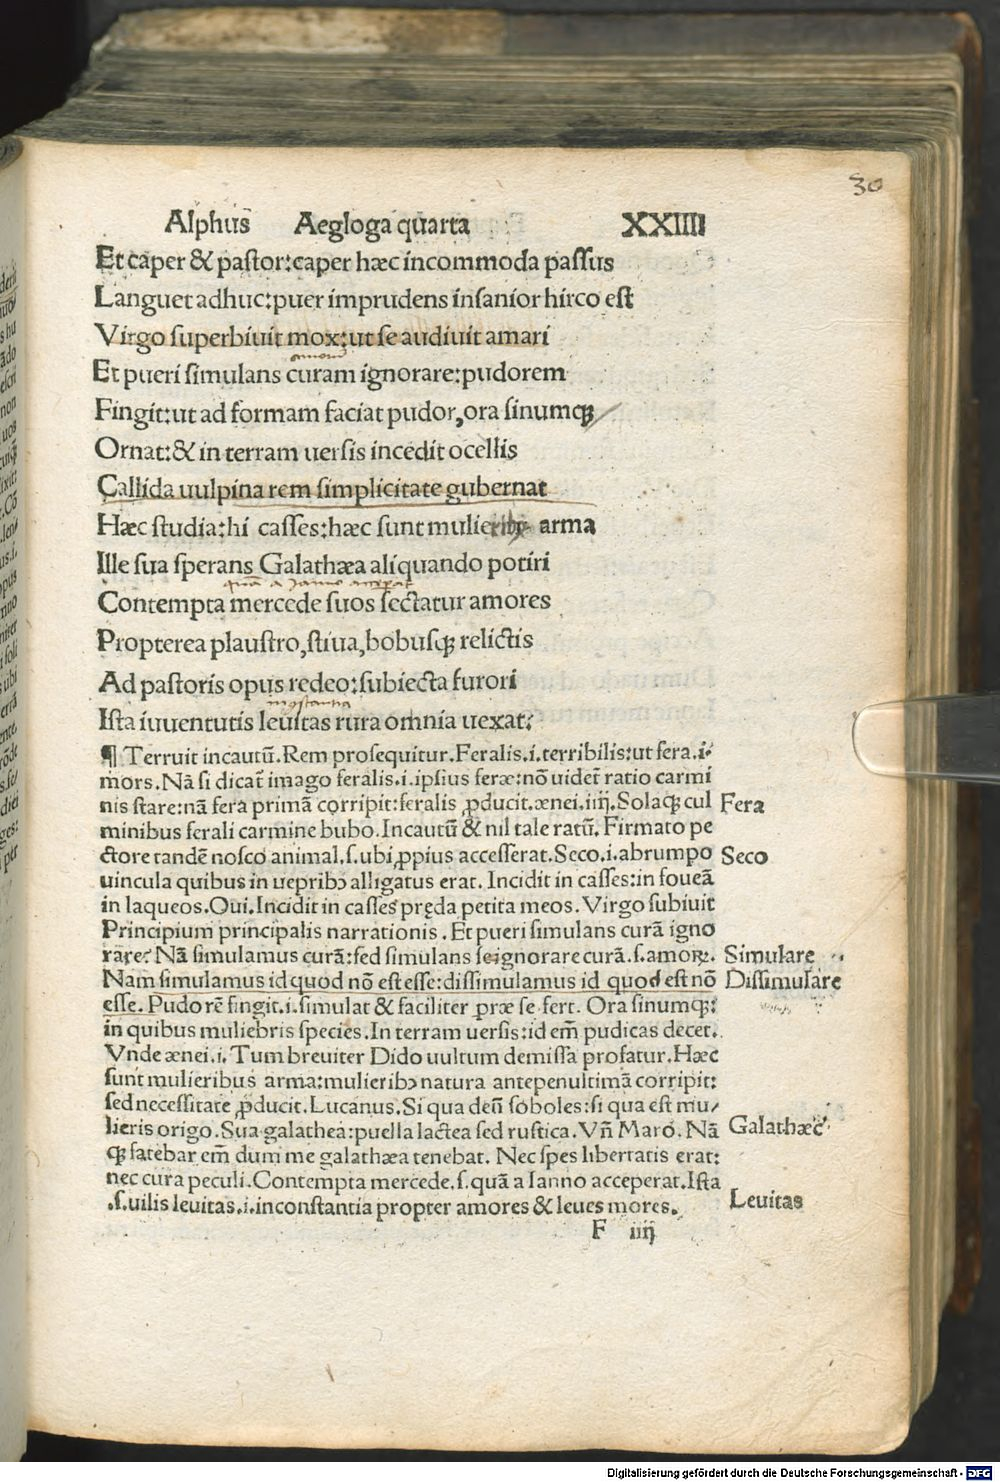 30
Alphus Aegloga quarta XXIIII
Et caper & pastor:caper hæc incommoda passus
Languet adhuc:puer imprudens insanior hirco est
Virgo superbiuit mox:ut se audiuit amari
amoris
Et pueri simulans curam ignorare:pudorem
Fingit:ut ad formam faciat pudor,ora sinumqꝫ
Ornat:& in terram uersis incedit ocellis
Callida uulpina rem simplicitate gubernat
Hæc studia:hi casses:hæc sunt mulieribꝫ arma
Ille sua sperans Galathæa aliquando potiri
quã a Janno acceperat
Contempta mercede suos sectatur amores
Propterea plaustro,stiua,bobusqꝫ relictis
Ad pastoris opus redeo:subiecta furori
incõstantia
Ista iuuentutis leuitas rura omnia uexat:
¶.Terruit incautũ.Rem prosequitur.Feralis.i.terribilis:ut fera.i.
mors.Nã si dicat̃ imago feralis.i.ipsius feræ:nõ uidet̃ ratio carmi
nis stare:nã fera primã corripit:feralis ꝓducit.ænei.iiij.Solaqꝫ cul
minibus ferali carmine bubo.Incautũ & nil tale ratũ.Firmato pe
ctore tandẽ nosco animal.s.ubi ꝓpius accesserat.Seco.i.abrumpo
uincula quibus in uepribꝰ alligatus erat. Incidit in casses:in foueã
in laqueos.Oui.Incidit in casses pręda petita meos.Virgo subiuit
Principium principalis narrationis.Et pueri simulans curã igno
rare: Nã simulamus curã:sed simulans se ignorare curã.s.amorꝝ.
Nam simulamus id quod nõ est esse:dissimulamus id quod est nõ
esse.Pudorẽ fingit.i.simulat & faciliter præ se fert. Ora sinumqꝫ:
in quibus muliebris species.In terram uersis:id em̃ pudicas decet.
Vnde ænei.i.Tum breuiter Dido uultum demissa profatur.Hæc
sunt mulieribus arma:mulieribꝰ natura antepenultimã corripit:
sed necessitate ꝓducit.Lucanus.Si qua deũ soboles:si qua est mu/
lieris origo.Sua galathea:puella lactea sed rustica.Vñ Maro.Nã
qꝫ fatebar em̃ dum me galathæa tenebat. Nec spes libertatis erat:
nec cura peculi.Contempta mercede.s.quã a Ianno acceperat.Ista
.s.uilis leuitas.i.inconstantia propter amores & leues mores.
Fera
Seco
Simulare
Dissimulare
Galathæc
Leuitas
F iiij
Digitalisierung gefördert durch die Deutsche Forschungsgemeinschaft - DFG